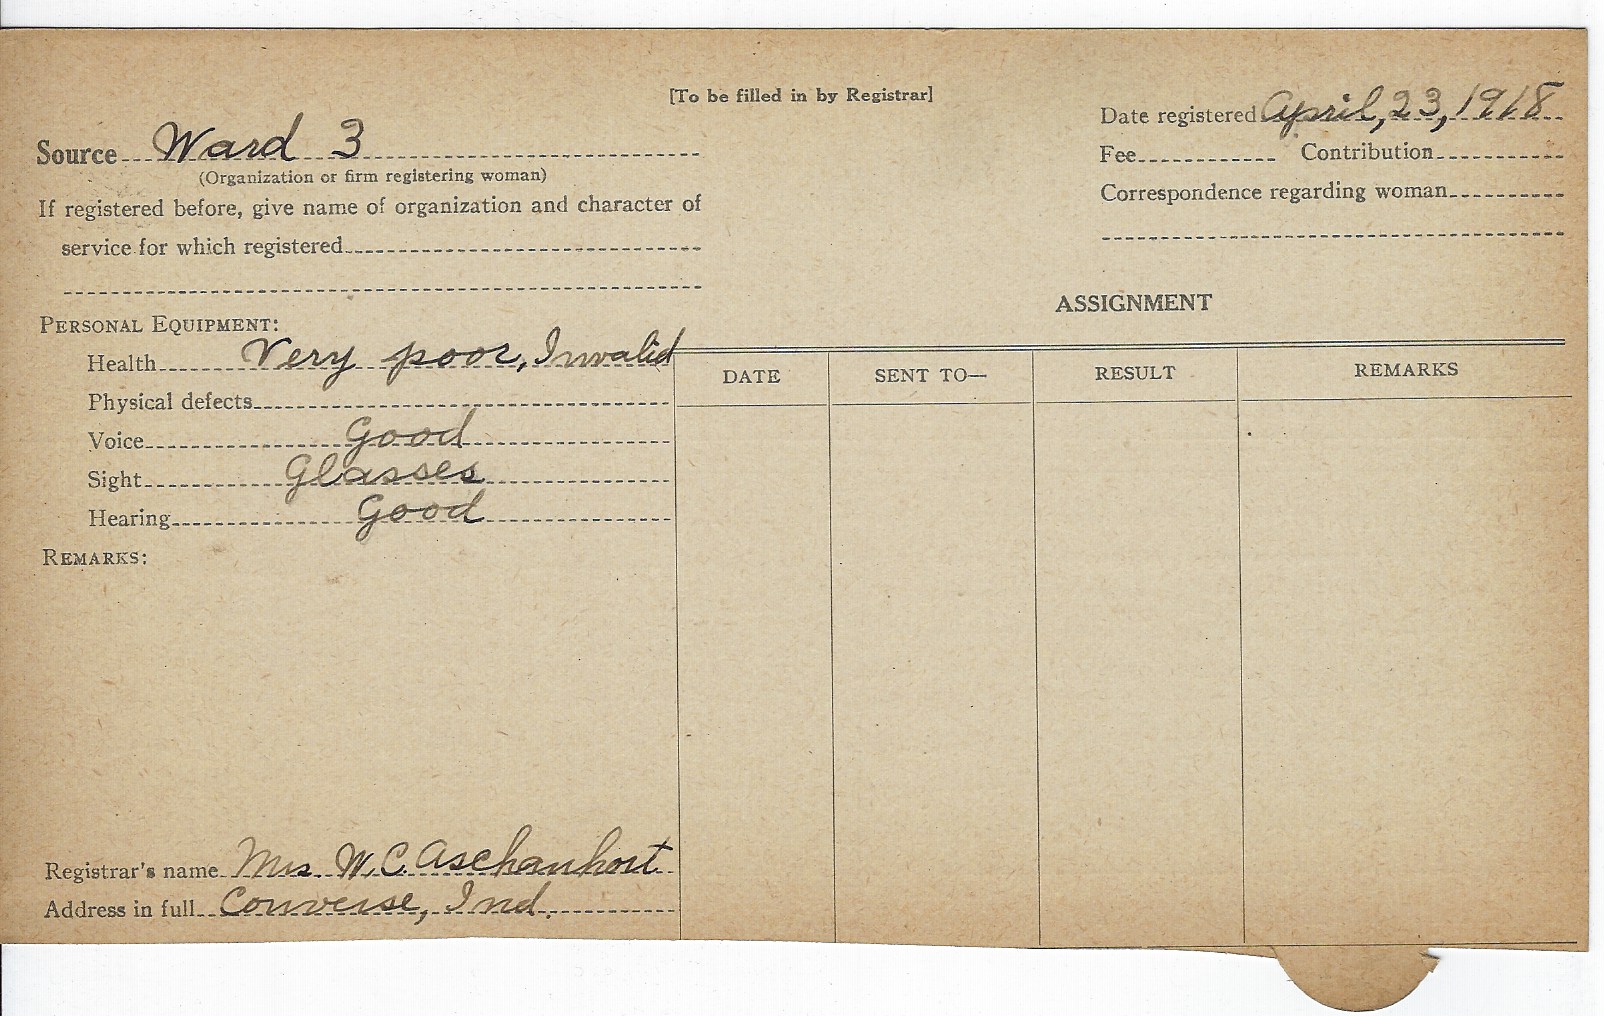 [To be filled in by Registrar]
Date registered April, 23, 1918
Source Ward 3
(Organization or firm registering woman)
Fee Contribution
If registered before, give name of organization and character of
service for which registered
Correspondence regarding woman
ASSIGNMENT
PERSONAL EQUIPMENT:
Health Very poor, Invalid
Physical defects
Voice Good
Sight Glasses
Hearing Good
DATE SENT TO— RESULT REMARKS
REMARKS:
Registrar's name Mrs. W. C. Aschanhort
Address in full Converse, Ind.